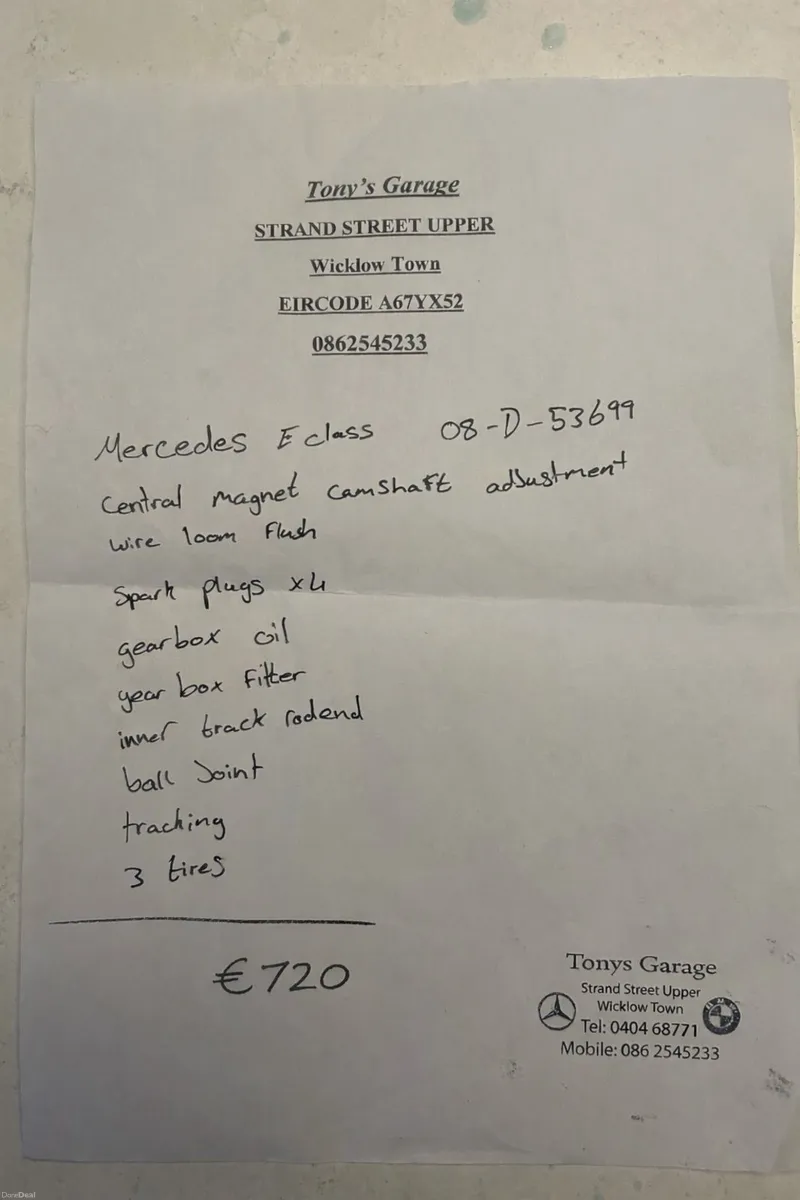 Tony's Garage
STRAND STREET UPPER
Wicklow Town
EIRCODE A67YX52
0862545233
Mercedes E class 08-D-53699
Central magnet camshaft adjustment
wire loom flush
Spark plugs x4
gearbox oil
gear box filter
inner track rodend
ball Joint
tracking
3 tires
€720
Tonys Garage
Strand Street Upper
Wicklow Town
Tel: 0404 68771
Mobile: 086 2545233
DoneDeal